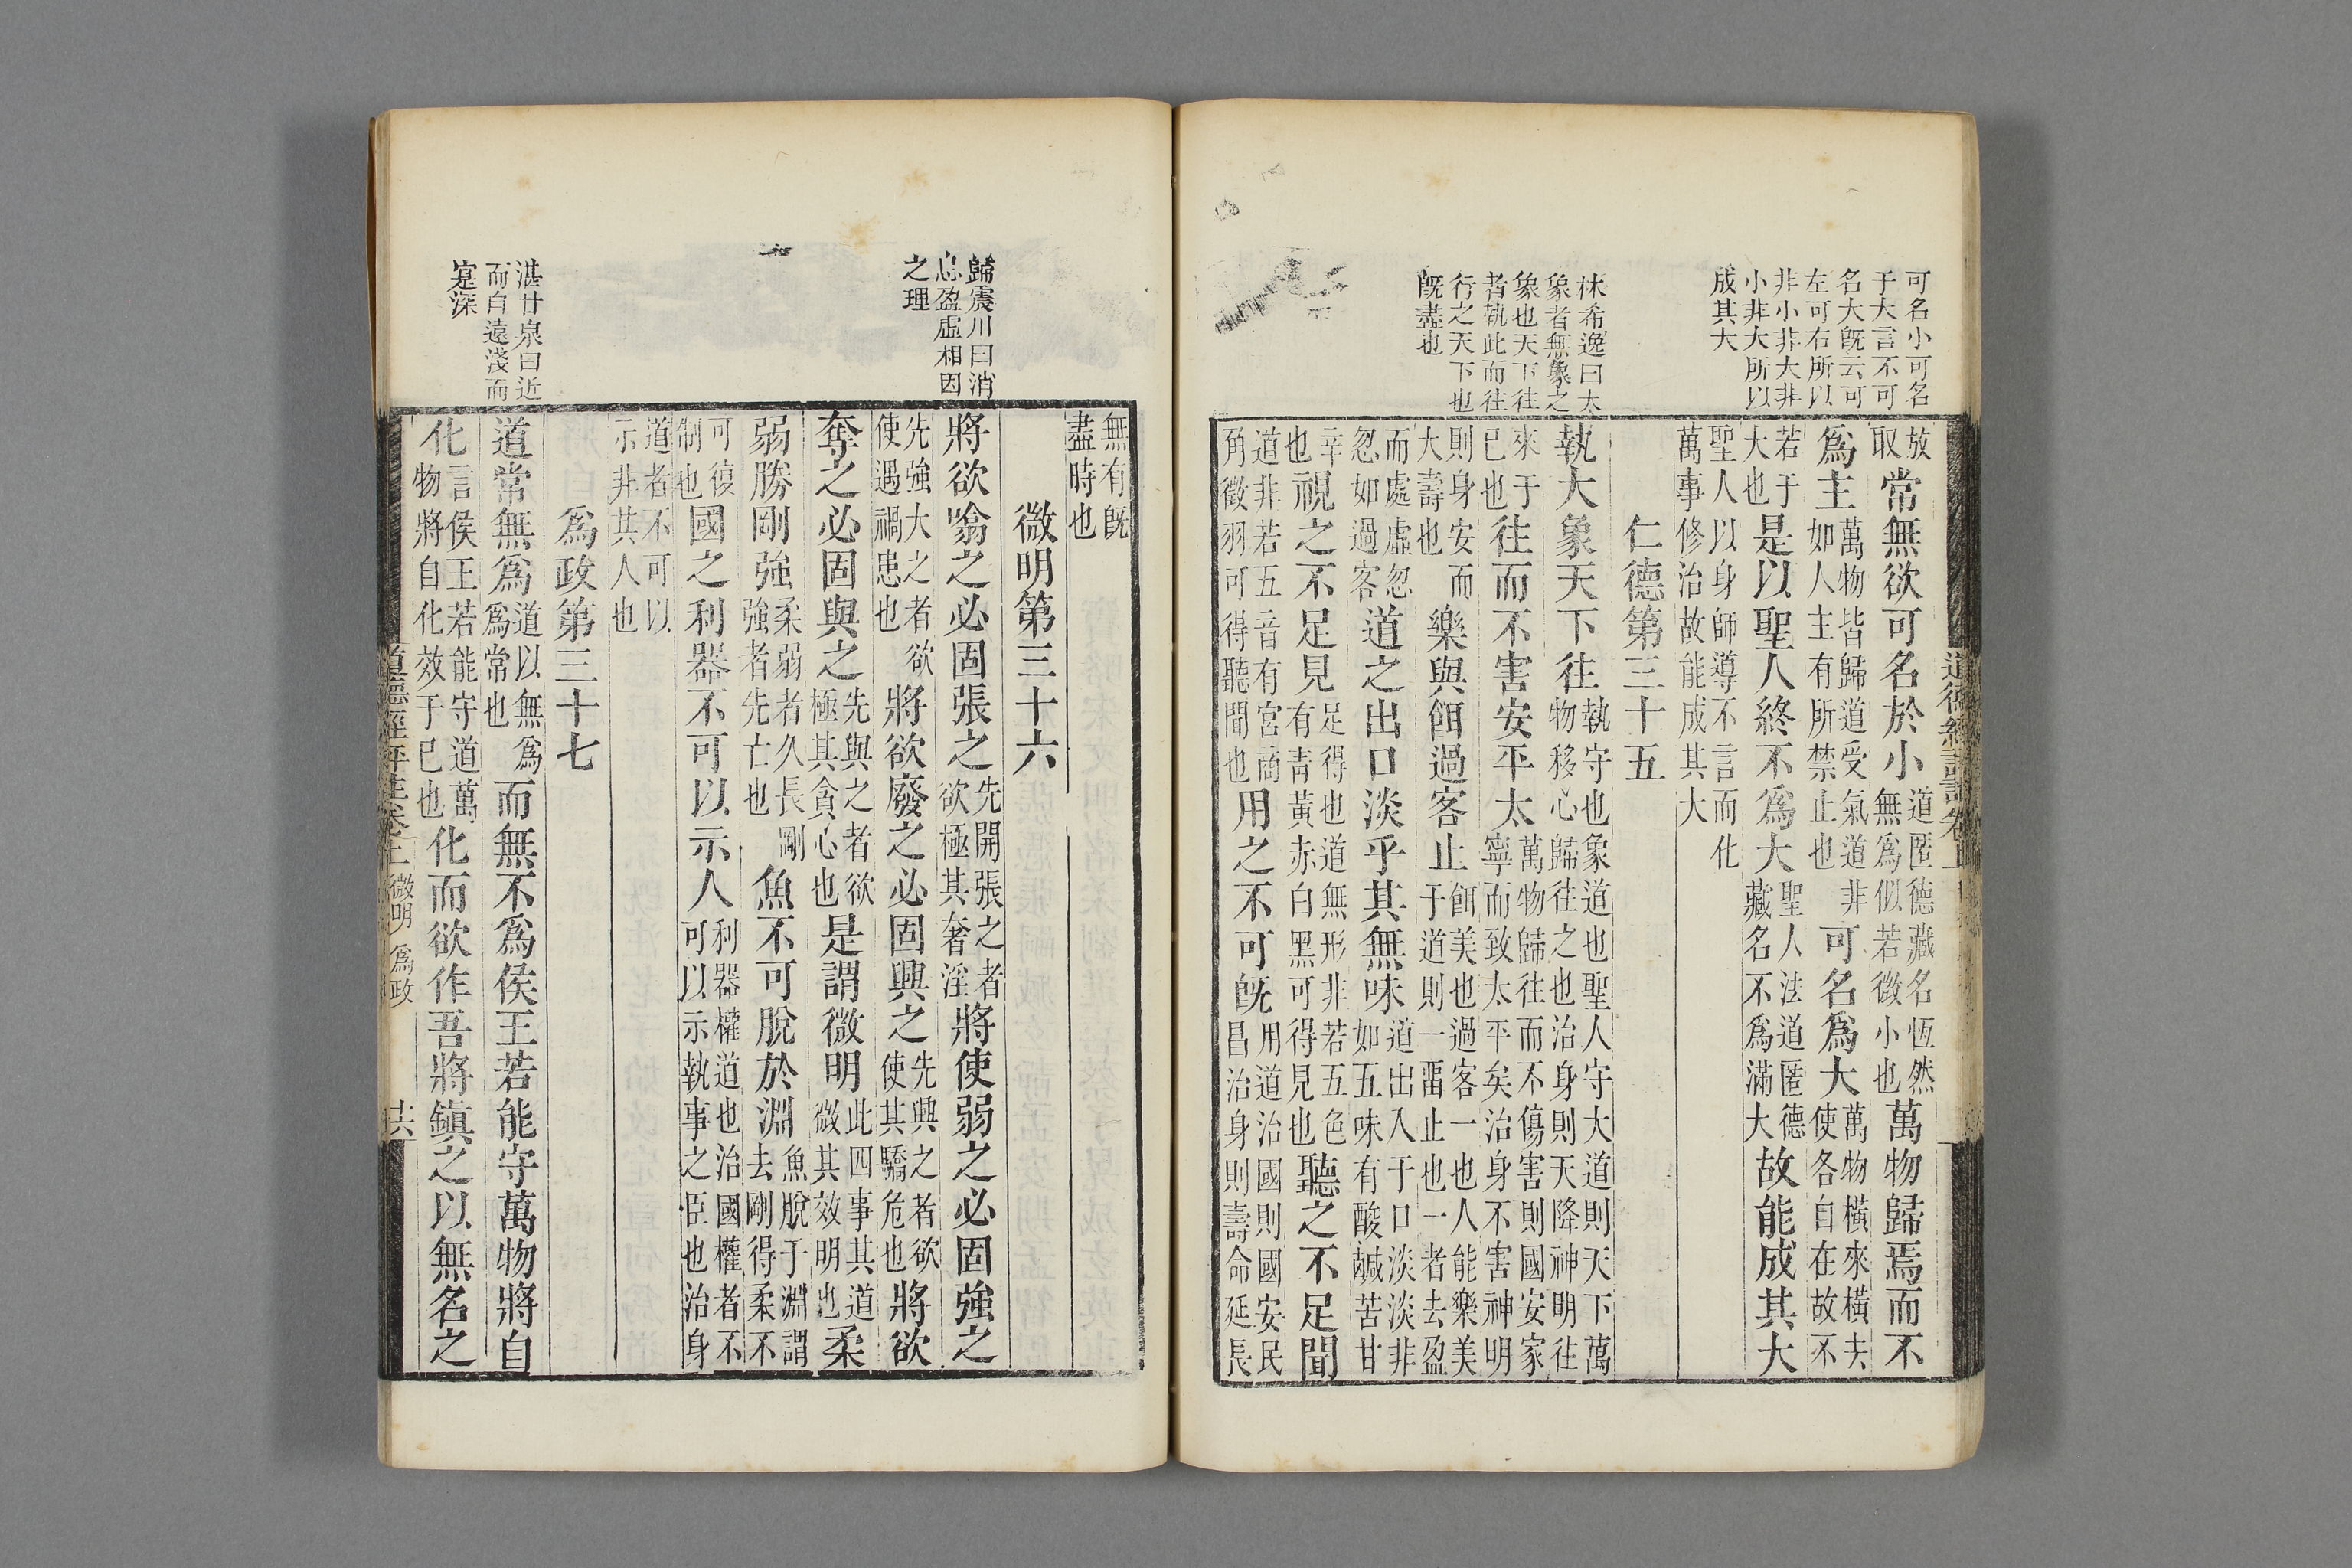 可名小可名
于大言不可
名大旣云可
左可右所以
非小非大非
小非大所以
成其大
林希逸曰太
象者無象之
象也天下往
者執此而往
行之天下也
旣盡也
放取常無欲可名於小道匿德藏名恆然無爲似若微小也萬物歸焉而不
爲主萬物皆歸道受氣道非如人主有所禁止也可名爲大萬物橫來橫去使各自在故不
若于大也是以聖人終不爲大聖人法道匿德藏名不爲滿大故能成其大
聖人以身師導不言而化萬事修治故能成其大
仁德第三十五
執大象天下往執守也象道也聖人守大道則天下萬物移心歸往之也治身則天降神明往
來于已也往而不害安平太萬物歸往而不傷害則國安家寧而致太平矣治身不害神明
則身安而大壽也樂與餌過客止餌美也過客一也人能樂美于道則一畱止也一者去盈
而處虛忽忽如過客道之出口淡乎其無味道出入于口淡淡非如五味有酸鹹苦甘
辛也視之不足見足得也道無形非若五色有青黃赤白黑可得見也聽之不足聞
道非若五音有宮商角徵羽可得聽聞也用之不可旣用道治國則國安民昌治身則壽命延長
歸震川曰消
息盈虛相因
之理
湛甘泉曰近
而自遠淺而
寔深
無有旣盡時也
微明第三十六
將欲噏之必固張之先開張之者欲極其奢淫將使弱之必固強之
先強大之者欲使遇禍患也將欲廢之必固興之先興之者欲使其驕危也將欲
奪之必固與之先與之者欲極其貪心也是謂微明此四事其道微其效明也柔
弱勝剛強柔弱者久長剛強者先亡也魚不可脫於淵魚脫于淵謂去剛得柔不
可復制也國之利器不可以示人利器權道也治國權者不可以示執事之臣也治身
道者不可以示非其人也
爲政第三十七
道常無爲道以無爲爲常也而無不爲侯王若能守萬物將自
化言侯王若能守道萬物將自化效于已也化而欲作吾將鎭之以無名之
道德經評註卷上 微明 爲政